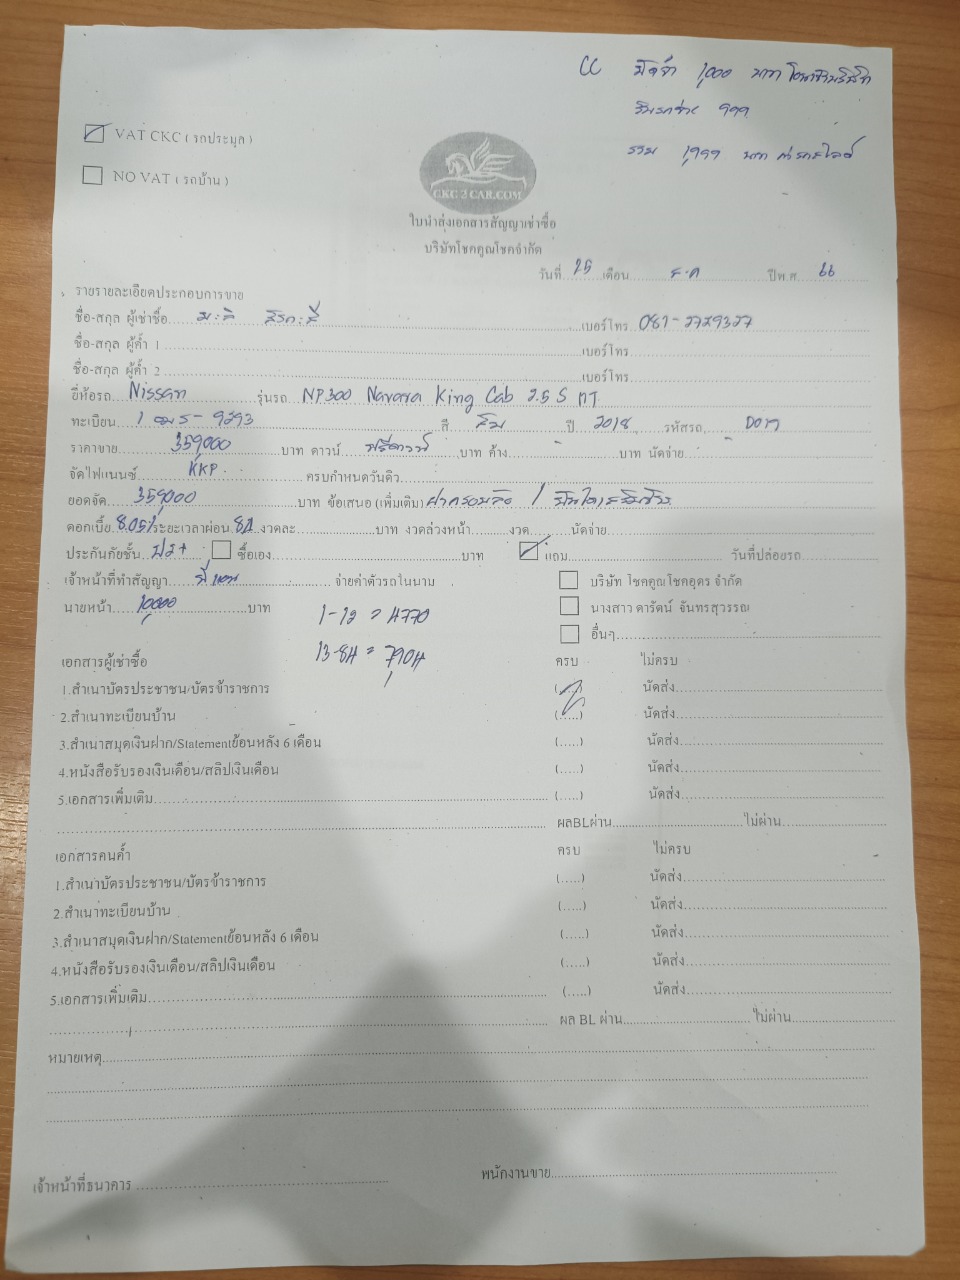 CC มัดจำ 1,000 บาท
999
รวม 1,999 บาท
VAT CKC ( รถประมูล )
NO VAT ( รถบ้าน )
CKC 2 CAR.COM
ใบนำส่งเอกสารสัญญาเช่าซื้อ
บริษัทโชคคูณโชคจำกัด
วันที่ 25 เดือน ธ.ค ปีพ.ศ. 66
รายรายละเอียดประกอบการขาย
ชื่อ-สกุล ผู้เช่าซื้อ เบอร์โทร 081-2729327
ชื่อ-สกุล ผู้ค้ำ 1 เบอร์โทร
ชื่อ-สกุล ผู้ค้ำ 2 เบอร์โทร
ยี่ห้อรถ Nissan รุ่นรถ NP300 Navara King Cab 2.5 S MT
ทะเบียน 9293 สี ส้ม ปี 2018 รหัสรถ
ราคาขาย 359,000 บาท ดาวน์ ฟรีดาวน์ บาท ค้าง บาท นัดจ่าย
จัดไฟแนนซ์ KKP ครบกำหนดวันคิว
ยอดจัด 359,000 บาท ข้อเสนอ (เพิ่มเติม)
ดอกเบี้ย 8.05% ระยะเวลาผ่อน 84 งวดละ บาท งวดล่วงหน้า งวด นัดจ่าย
ประกันภัยชั้น ป2+ ซื้อเอง บาท แถม วันที่ปล่อยรถ
เจ้าหน้าที่ทำสัญญา จ่ายค่าตัวรถในนาม บริษัท โชคคูณโชคอุดร จำกัด
นายหน้า 10,000 บาท 1-12 = 4770 นางสาว ดารัตน์ จันทรสุวรรณ
13-84 = 7,904 อื่นๆ
เอกสารผู้เช่าซื้อ ครบ ไม่ครบ
1.สำเนาบัตรประชาชน/บัตรข้าราชการ (.....) นัดส่ง
2.สำเนาทะเบียนบ้าน (.....) นัดส่ง
3.สำเนาสมุดเงินฝาก/Statementย้อนหลัง 6 เดือน (.....) นัดส่ง
4.หนังสือรับรองเงินเดือน/สลิปเงินเดือน (.....) นัดส่ง
5.เอกสารเพิ่มเติม (.....) นัดส่ง
ผลBLผ่าน ไม่ผ่าน
เอกสารคนค้ำ ครบ ไม่ครบ
1.สำเนาบัตรประชาชน/บัตรข้าราชการ (.....) นัดส่ง
2.สำเนาทะเบียนบ้าน (.....) นัดส่ง
3.สำเนาสมุดเงินฝาก/Statementย้อนหลัง 6 เดือน (.....) นัดส่ง
4.หนังสือรับรองเงินเดือน/สลิปเงินเดือน (.....) นัดส่ง
5.เอกสารเพิ่มเติม (.....) นัดส่ง
ผล BL ผ่าน ไม่ผ่าน
หมายเหตุ
เจ้าหน้าที่ธนาคาร พนักงานขาย